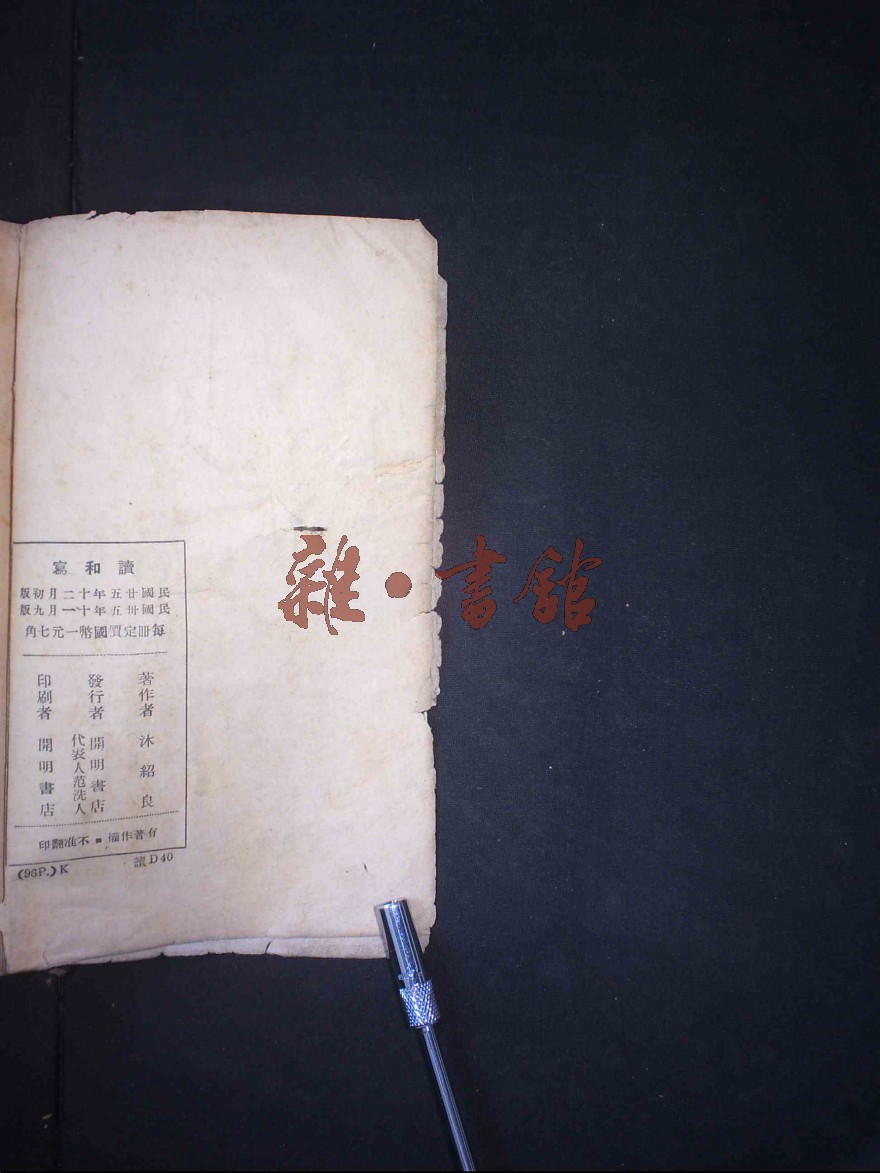 讀和寫
民國廿五年十二月初版
民國卅五年十一月九版
每冊定價國幣一元七角
著作者 沐紹良
發行者 開明書店
代表人范洗人
印刷者 開明書店
有著作權■不准翻印
(96P.)K 讀D40
雜·書館